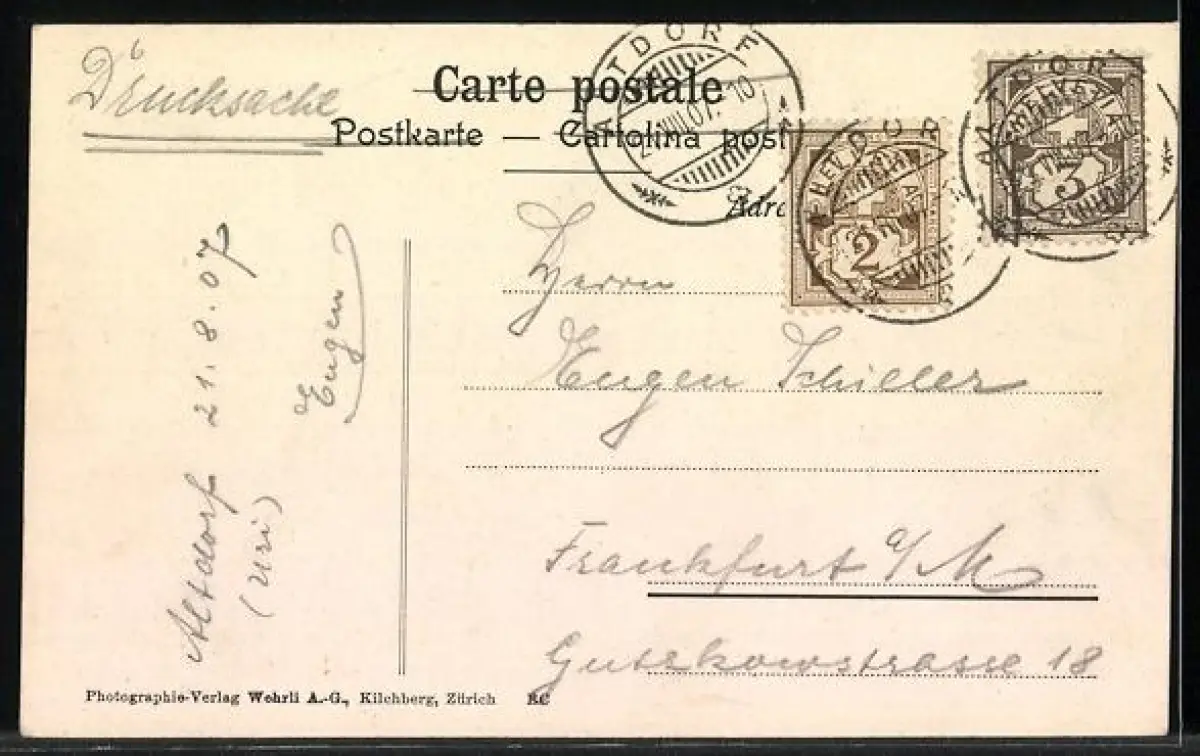 Drucksache
Carte postale
Postkarte — Cartolina post
Adre
ALTDORF
21.VIII.07. 10
HELVETIA
2
ALTDORF
HELVETIA
3
ALTDORF
Herrn
Eugen Schiller
Frankfurt a/M
Gutzkowstrasse 18
Altdorf 21.8.07
(Uri)
Eugen
Photographie-Verlag Wehrli A.-G., Kilchberg, Zürich